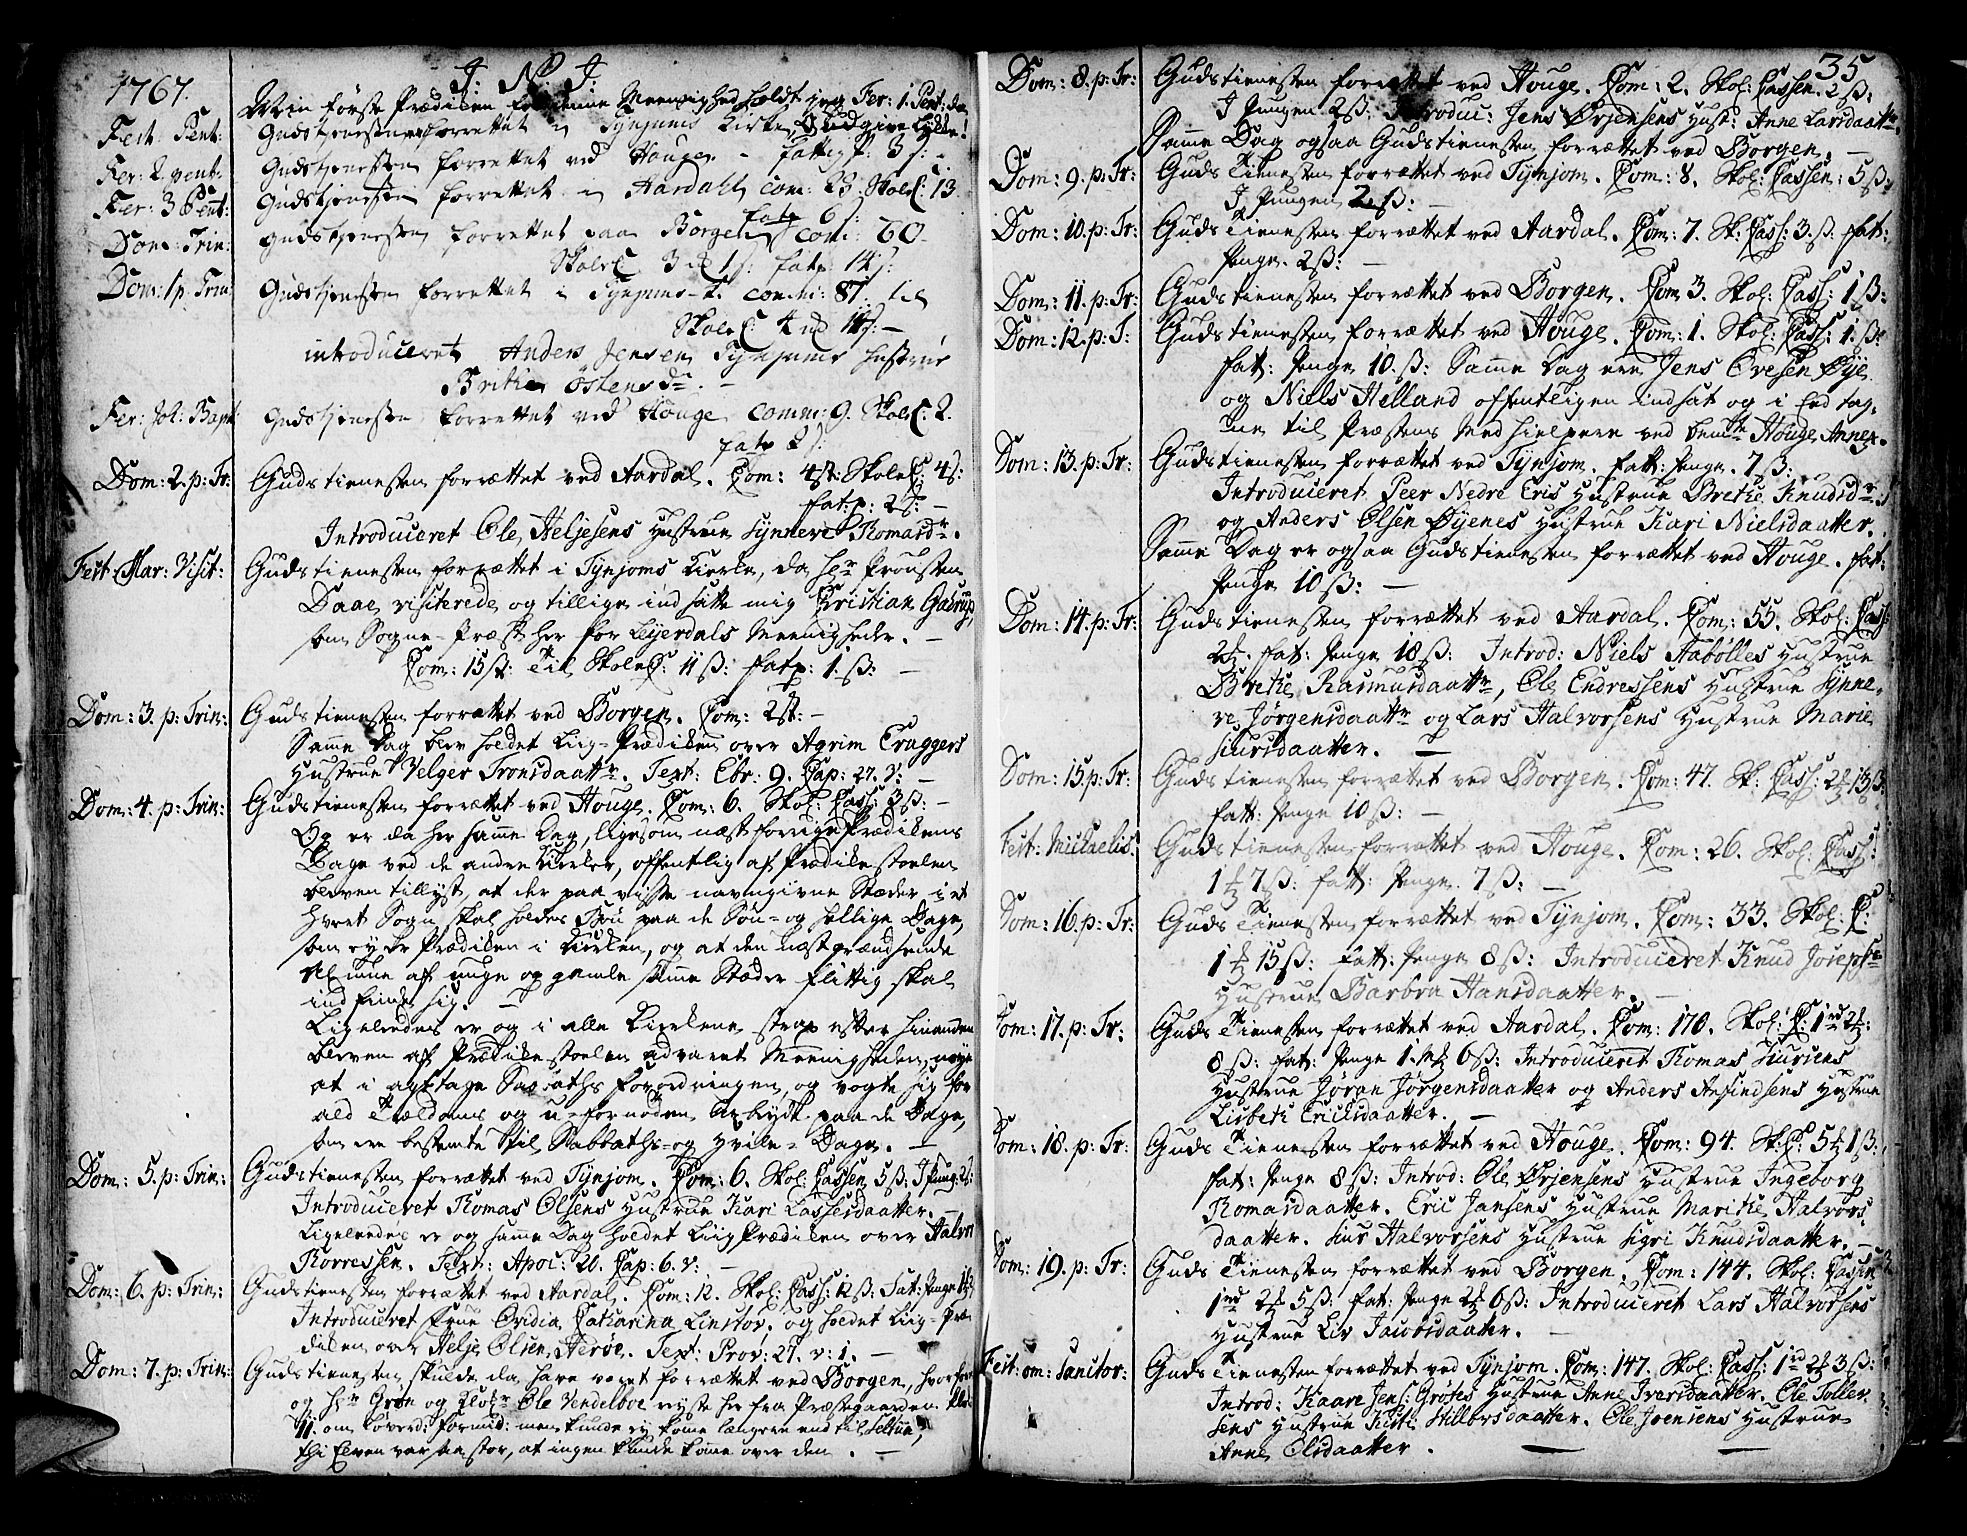 1767. J: N: J:
Min første Prædiken for denne Meenighed holdt jeg Fer: 1. Pent: da
Fest: Pent: Gudstjenesten forrettet i Tynjums Kirke, Gud give Lykke!
Fer: 2 pent: Gudstjenesten forrettet ved Hauge. fattig p: 3 s:
Fer: 3 Pent: Gudstjenesten forrettet i Aardahl com: 23. Skole C: 13
fatp 6 s:
Dom: Trin: gudstjenesten forrettet paa Borgen com: 60
Skole C 3 1 s: fatp: 14 s:
Dom: 1 p. Trin: Gudstjenesten forrettet i Tynjums K. comm: 81. til
Skole C: 4 14 s: —
introduceret Anders Jensen Tynjums hustrue
Brithe Østensdr. —
Fer: Joh: Bapt: Gudstjenesten forrettet ved Houge comm: 9. Skole C: 2.
fatp 2 s:
Dom: 2. p: Tr: Guds tienesten forrættet ved Aardal. Com: 4st: Skole C: 4 s:
fat: p: 2 s: —
Introduceret Ole Heljesens Hustrue Synneve Tomasdr.
Fest: Mar: Visit: Guds tienesten forrættet i Tynjoms Kierke, da Hr Prousten
Daae visiterede og tillige indsatte mig Christian Gadrup,
som Sogne-Præst her for Leyerdals Meenigheder. —
Com: 15st: Til Skole C: 11 ß: fatp: 1. ß: —
Dom: 3. p: Trin: Guds tienesten forrættet ved Borgen. Com: 2st: —
Samme Dag blev holdet Liig-Prædiken over Agrim Eraggers
Hustrue Helger Tronsdaattr. Text: Ebr: 9. Cap: 27. v: —
Dom: 4. p: Trin: Guds tienesten forrættet ved Houge. Com: 6. Skol: Cass: 3 ß: —
Og er da her samme Dag, ligesom næst forrige Prædikens
Dage ved de andre Kierker, offentlig af Prædikestoelen
bleven tillyst, at der paa visse navngivne Stæder i et
hvert Sogn skal holdes Bøn paa de Søn- og hellige Dage,
som ey er Prædiken i Kirken, og at den næstgrændsende
Almue af unge og gamle samme Stæder flittig skal
indfinde sig. —
Ligeledes er og i alle Kirkene strax efter hinanden
bleven af Prædikestoelen advaret Meenigheden, nøye
at i agttage Sabbaths Forordningen, og vogte sig for
ald Trældoms og u-fornøden Arbeyde paa de Dage,
som ere bestemte til Sabbaths- og Hvile-Dage. —
Dom: 5. p: Trin: Gudstienesten forrættet ved Tynjom. Com: 6. Skol: Cassen 5 ß: I Pung: 2 ß:
Introduceret Tomas Olsens Hustrue Kari Lassesdaatter. —
Ligeledes er og samme Dag holdet Liig Prædiken over Halvor
Torressen. Text: Apoc: 20. Cap: 6. v: —
Dom: 6. p: Trin: Gudstienesten forrættet ved Aardal. Com: 12. Skol: Cass: 12 ß: Fat: Penge
Introduceret Frue Ovidia Catharina Linstov. og holdet Liig-Præ
diken over Helje Olsen Herøe. Text: Prov: 27. v: 1. —
Dom: 7. p: Trin: Guds tienesten skulde da have været forrættet ved Borgen, hvorfore
og Hr Grøn og Klokr Ole Vendelboe reyste her fra Præstegaarden Klok:
11. om Løverd: Formid: men kunde ey kome længere end til Seltun,
thi Elven var saa stor, at ingen kunde kome over den. —
35
Dom: 8. p: Tr: Guds tienesten forrættet ved Houge. Com: 2. Skol: Cassen. 2 ß:
I Pungen 2 ß: Introduc: Jens Ørjensens Hustr: Anne Larsdaattr.
Samme Dag ogsaa Gudstienesten forrættet ved Borgen. —
Dom: 9. p: Tr: Guds Tienesten forrættet ved Tynjom. Com: 8. Skol: Cassen: 5 ß:
I Pungen 2 ß: —
Dom: 10. p: Tr: Guds Tienesten forrættet ved Aardal. Com: 7. Sk: Cass: 3. ß: fat:
Penge. 2 ß: —
Dom: 11. p: Tr: Guds tienesten forrættet ved Borgen. Com 3. Skol: Cass: 1 ß:
Dom: 12. p: T: Guds tienesten forrættet ved Houge. Com: 1. Skol: Cass: 1. ß:
fat: Penge 10. ß: Samme Dag ere Jens Ovesen Øye
og Niels Helland offentligen indsat og i Eed tag-
ne til Præstens Medhielpere ved bemte Houge Annex.
Dom: 13. p: Tr: Guds tienesten forrættet ved Tynjom. fatt: Penge. 7 ß:
Introduceret Peer Nedre Eris Hustrue Bretke Knudsdr.
og Anders Olsen Øyenes Hustrue Kari Nielsdaatter.
Samme Dag er ogsaa Guds tienesten forrættet ved Houge. fat:
Penge 10 ß: —
Dom: 14. p: Tr: Guds tienesten forrættet ved Aardal. Com: 55. Skol: Cass:
2 . fat: Penge 18 ß: Introd: Niels Aabølles Hustrue
Bretke Rasmusdaattr, Ole Endressens Hustrue Synne-
ve Jørgensdaattr og Lars Halvorsens Hustrue Marie
Siursdaatter. —
Dom: 15 p: Tr: Guds tienesten forrættet ved Borgen. Com: 47. Sk: Cass: 2 13 ß:
fatt: Penge 10 ß: —
Fest: Michaelis: Guds tienesten forrættet ved Houge. Com: 26. Skol: Cass:
1 7 ß: fatt: Penge. 7 ß: —
Dom: 16. p: Tr: Guds Tienesten forrættet ved Tynjom. Com: 33. Skol: C:
1 15 ß: fatt: Penge 8 ß: Introduceret Knud Josephs:
Hustrue Barbra Hansdaatter. —
Dom: 17. p: Tr: Guds Tienesten forrættet ved Aardal. Com: 170. Skol: C: 1 rd 2
8 ß: fat: Penge 1. mk 6 ß: Introduceret Tomas Siursens
Hustrue Jøran Jørgensdaatter og Anders Anfindsens Hustrue
Lisbeth Ericksdaatter. —
Dom: 18. p: Tr: Guds Tienesten forrættet ved Houge. Com: 94. Sk: C: 5 1 ß:
fat: Penge 8 ß: Introd: Ole Ørjensens Hustrue Ingeborg
Tomasdaatter. Eric Jansens Hustrue Marithe Halvors-
daatter. Siur Halvorsens Hustrue Sigri Knudsdaatter. —
Dom: 19. p: Tr: Guds Tienesten forrættet ved Borgen. Com: 144. Skol: Cassen
1 rd 2 5 ß: fat: Penge 2 6 ß: Introduceret Lars Halvorsens
Hustrue Liv Jacobsdaatter. —
Fest: om: Sanctor: Guds Tienesten forrættet ved Tynjom. Com: 147. Skol: Cass: 1 rd 2 3 ß:
Introd: Kaare Jens: Grøtes Hustrue Anne Iversdaatter. Ole Toller-
sens Hustrue Kisti Stillorsdaatter. Ole Joensens Hustrue
Anne Olsdaatter. — —